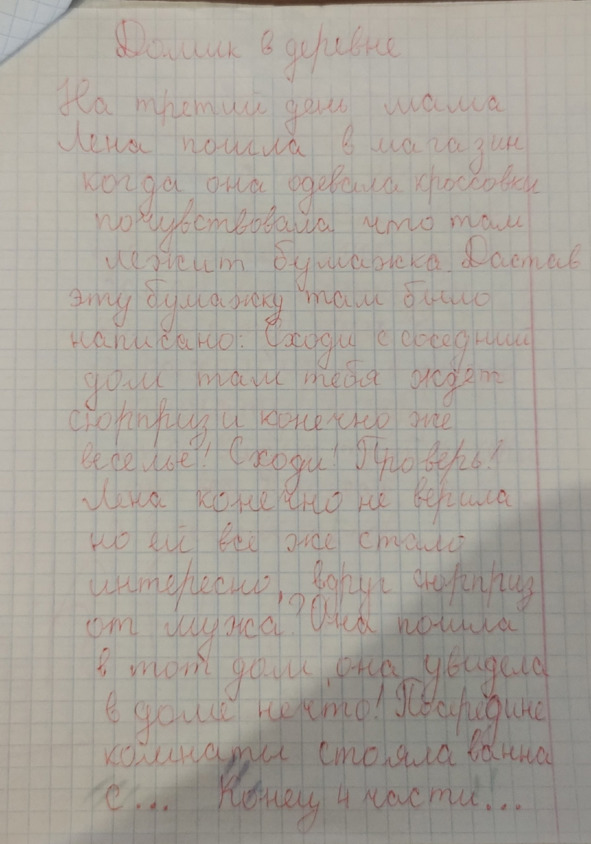 Домик в деревне
На третий день мама
Лена пошла в магазин
когда она одевала кроссовки
почувствовала что там
лежит бумажка. Дастав
эту бумажку там было
написано: Сходи с соседний
дом там тебя ждёт
сюрприз и конечно же
веселье! Сходи! Проверь!
Лена конечно не верила
но ей всё же стало
интересно, вдруг сюрприз
от мужа!? Она пошла
в тот дом, она увидела
в доме нечто! Посредине
комнаты стояла ванна
с... Конец 4 части...